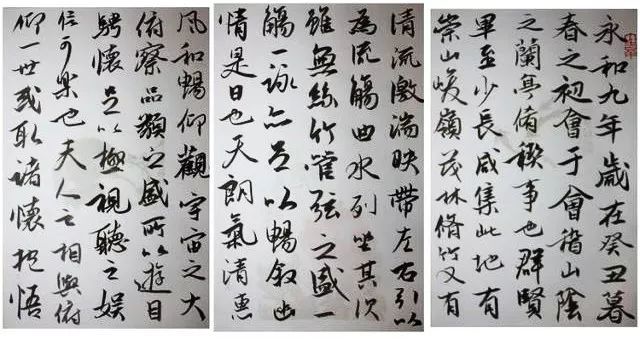 永和九年歲在癸丑暮
春之初會于會稽山陰
之蘭亭脩禊事也群賢
畢至少長咸集此地有
崇山峻嶺茂林脩竹又有
清流激湍映帶左右引以
為流觴曲水列坐其次
雖無絲竹管弦之盛一
觴一詠亦足以暢叙幽
情是日也天朗氣清惠
風和暢仰觀宇宙之大
俯察品類之盛所以遊目
騁懷足以極視聽之娛
信可樂也夫人之相與俯
仰一世或取諸懷抱悟